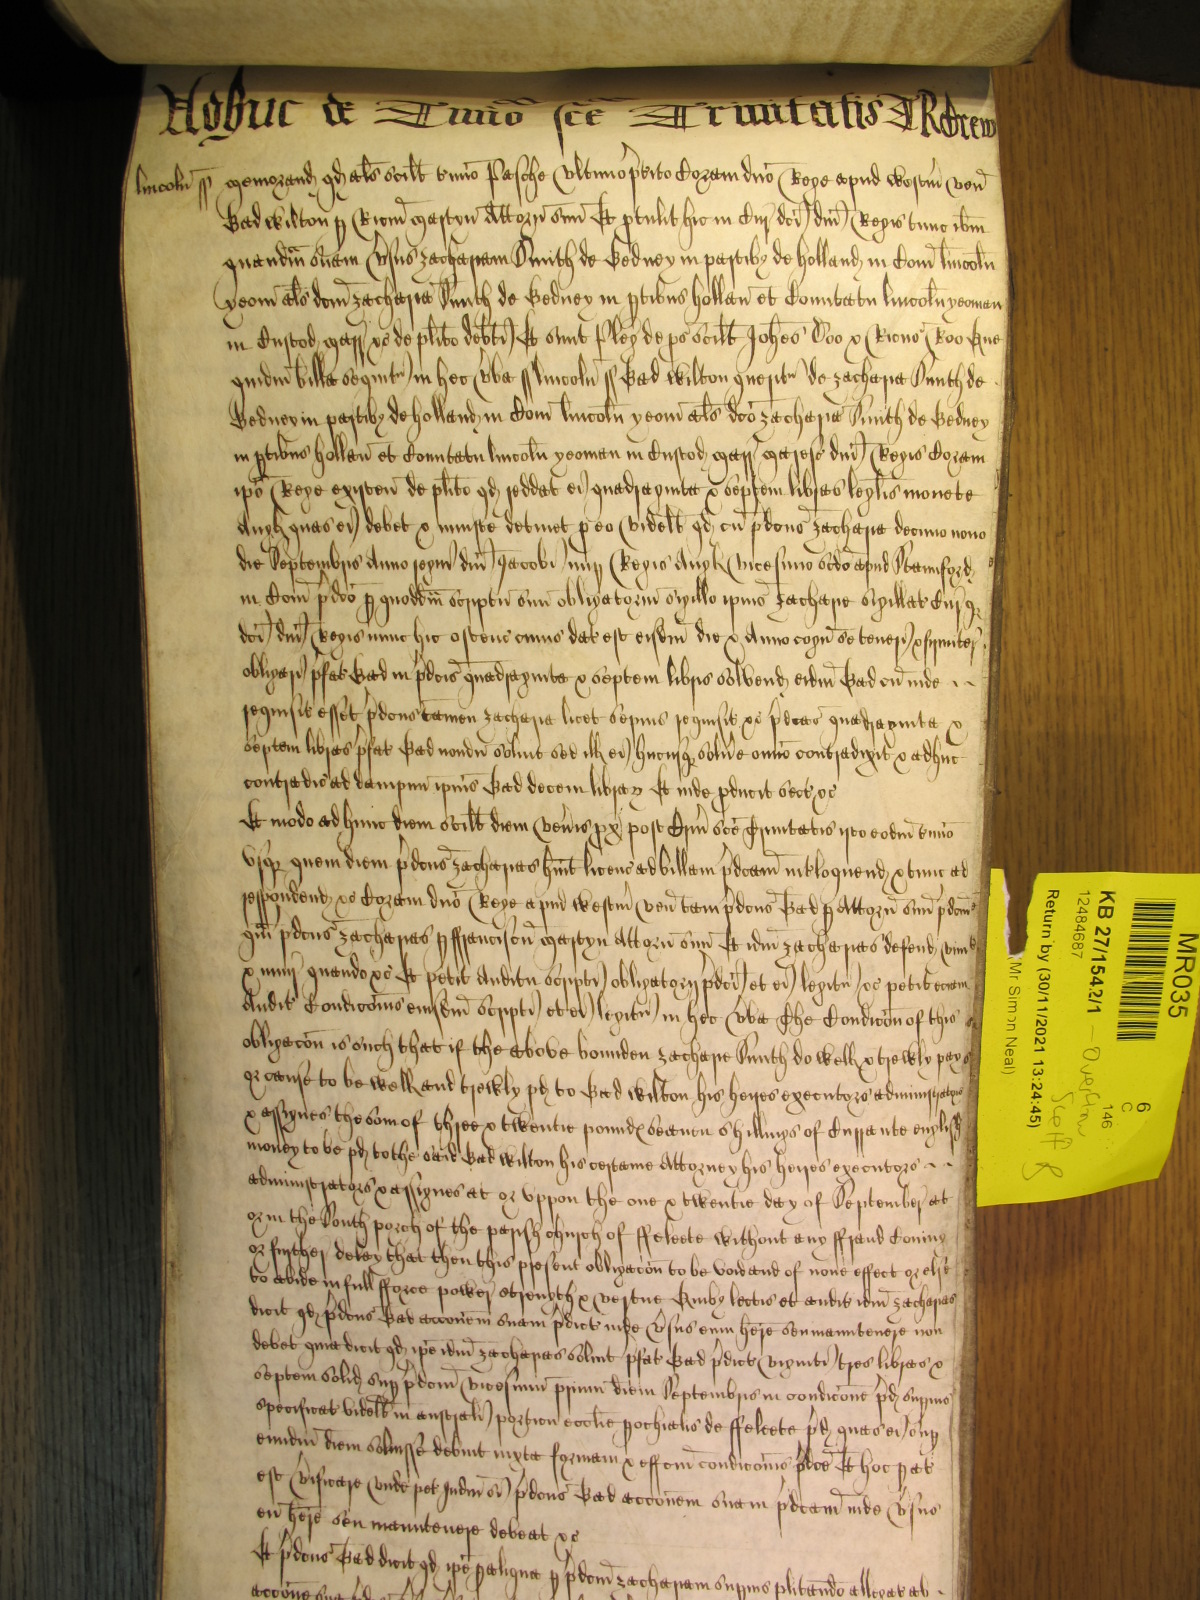 Adhuc de Tmino sce Trinitatis
lincoln ss Memorand qd als scilt tmino Pasche ultimo pterito Coram dno Rege apud Westm ven
Bad Wilton p Ricm Martyn Attorn suu Et ptulit hic in Cur dci dni Regis tunc ibm
quandm billam vsus Zachariam Smith de Gedney in partiby de Holland in Com lincoln
yeom als dcm Zacharia Smith de Gedney in ptibus Hollan et Comitatu lincoln yeoman
in Custod Marr &c de plito debti Et sunt pleg de ps scilt Johes Doo & Ricus Roo Que
quidm billa sequitr in hec vba ss lincoln ss Bad Wilton queritr de Zacharia Smith de
Gedney in partiby de Holland in Com lincoln yeom als dco Zacharia Smith de Gedney
in ptibus Hollan et Comitatu lincoln yeoman in Custod Marr Maresc dni Regis Coram
ipo Rege existen de plito qd reddat ei quadraginta & septem libras leglis monete
Angl quas ei debet & iniuste detinet p eo videlt qd cu pdcus Zacharia decimo nono
die Septembris Anno regni dni Jacobi nup Regis Angl vicesimo scdo apud Stamford
in Com pdco p quoddm scriptu suu obligatoriu sigillo ipius Zacharie sigillat Curq
dci dni Regis nunc hic ostens cuius dat est eisdm die & Anno cogn se teneri & firmiter
obligari pfat Bad in pdcis quadraginta & septem libris solvend eidm Bad cu inde
requisit esset pdcus tamen Zacharia licet sepius requisit &c pdcas quadraginta &
septem libras pfat Bad nondu solvit sed ill ei hucusq solve omino contradixit & adhuc
contradic ad dampnu ipius Bad decem librar Et inde pducit sect &c
Et modo ad hunc diem scilt diem Venis px post Crm sce Trinitatis isto eodm tmino
Usq quem diem pdcus Zacharias huit licenc ad billam pdcam intloquend & tunc ad
respondend &c Coram dno Rege apud Westm ven tam pdcus Bad p Attorn suu pdcm
qm pdcus Zacharias p ffranciscu Martyn Attorn suu Et idm Zacharias defend vim
& iniur quando &c Et petit auditu scripti obligatorij pdci et ei legitr &c petit eciam
Audit Condicois eiusdm scripti et ei legitr in hec vba The Condicon of this
obligacon is such that if the above bounden Zacharie Smith do well & trewly paye
or cause to be well and trewly pd to Bad Wilton his heyres executors administrators
& assignes the som of three & twentie pound seaven shillings of Currante english
money to be pd to the said Bad Wilton his certaine Attorney his heyres executors
administrators & assignes at or uppon the one & twentie day of September at
or in the South porch of the parish church of ffleete without any ffraud Coming
or further delay that then this present obligacon to be void and of none effect or else
to abide in full fforce power strength & vertue Quiby lectis et audit idm Zacharias
dicit qd pdcus Bad accoem suam pdict inde vsus eum here seu manutenere non
debet quia dicit qd ipe idm Zacharias solvit pfat Bad pdict viginti tres libras &
septem solid sup pdcm vicesimu primu diem Septembris in condicone pd supius
specificat videlt in australi porticu ecclie pochialis de ffleete pd quas ei sup
eundm diem solvisse debuit iuxta formam & effcm condicois pdce Et hoc pat
est vificare unde pet Judm si pdcus Bad accoem suam pdcam inde vsus
eu here seu manutenere debeat &c
Et pdcus Bad dicit qd ipe p aliqua p pdcm Zachariam supius plitando allegat ab
MR035
KB 27/1542/1
12484687
Return by (30/11/2021 13:24:45)
Mr Simon Neal)
6
C
146